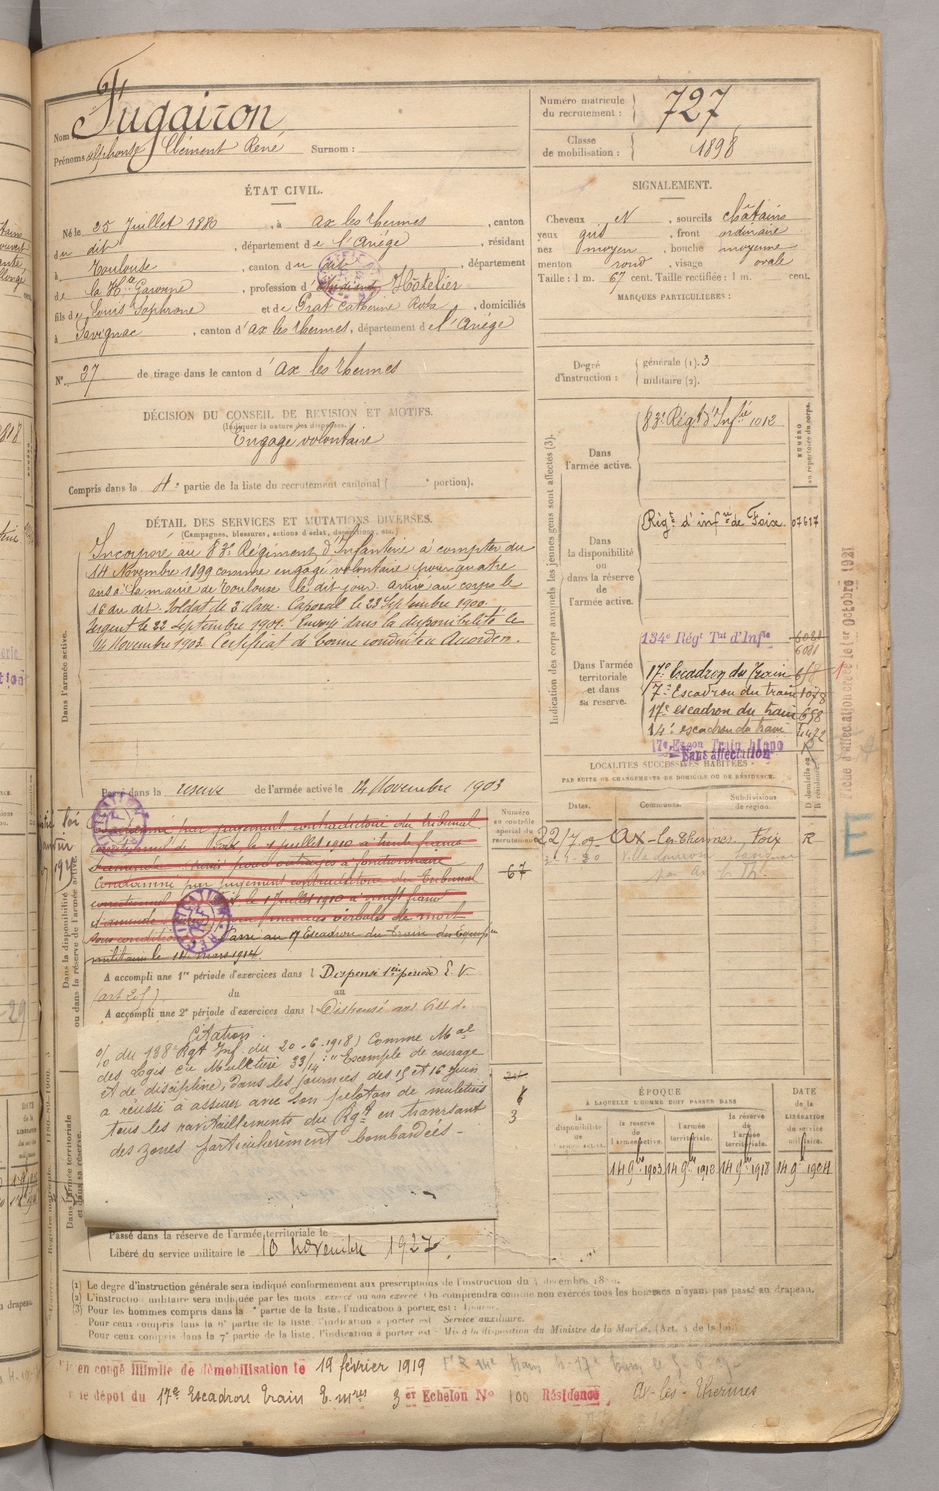 Nom : Fugairon
Prénoms alphonse Clément René Surnom :
Numéro matricule du recrutement : 727
Classe de mobilisation : 1898
ÉTAT CIVIL.
Né le 25 Juillet 1880, à ax les thermes, canton
du dit, département de l'Ariége, résidant
à Toulouse, canton du dit, département
de la Hte Garonne, profession d'étudiant Hôtelier
fils de Louis Sophrone et de Prat Catherine Rosa, domiciliés
à Savignac, canton d'ax les thermes, département de l'Ariége
N° 37 de tirage dans le canton d'ax les thermes
SIGNALEMENT.
Cheveux N, sourcils châtains
yeux gris, front ordinaire
nez moyen, bouche moyenne
menton rond, visage ovale
Taille : 1 m. 67 cent. Taille rectifiée : 1 m. cent.
MARQUES PARTICULIÈRES :
Degré d'instruction : générale (1). 3
militaire (2).
DÉCISION DU CONSEIL DE REVISION ET MOTIFS.
(Indiquer la nature des dispenses.)
Engagé volontaire
Compris dans la 4e partie de la liste du recrutement cantonal ( e portion).
DÉTAIL DES SERVICES ET MUTATIONS DIVERSES.
(Campagnes, blessures, actions d'éclat, décorations, etc.)
Incorporé au 83e Régiment d'Infanterie à compter du
14 Novembre 1899 comme engagé volontaire pour quatre
ans à la mairie de Toulouse le dit jour. arrivé au corps le
16 du dit. Soldat de 2 classe. Caporal le 23 Septembre 1900.
Sergent le 22 septembre 1901. Envoyé dans la disponibilité le
14 Novembre 1903 Certificat de bonne conduite Accordé.
Dans l'armée active.
Passé dans la réserve de l'armée active le 14 Novembre 1903
Indication des corps auxquels les jeunes gens sont affectés (3).
NUMÉRO au répertoire du corps.
Dans l'armée active.
83e Régt d'Infie 1012
Dans la disponibilité ou dans la réserve de l'armée active.
Régt d'infrie de Foix 07617
Dans l'armée territoriale et dans sa réserve.
134e Régt Tal d'Infie 6081
6081
17e Escadron du train 658
17e Escadron du train 1078
17e escadron du train 658
14e escadron du train 4422
17e Escon Train hippo
Sans affectation
Fiche d'affectation créée le 1er Octobre 1921
LOCALITÉS SUCCESSIVES HABITÉES
PAR SUITE DE CHANGEMENTS DE DOMICILE OU DE RÉSIDENCE.
Dates. Communes. Subdivisions de région. D domicile ou R résidence.
22/7 09 Ax-les-Thermes Foix R
E
Numéro au contrôle spécial du recrutement
67
Condamné par jugement contradictoire du tribunal
correctionnel de Foix le 1 juillet 1910 à trente francs
d'amende pour outrages à fonctionnaire
Condamné par jugement contradictoire du Tribunal
correctionnel de Foix le 1 Juillet 1910 à vingt francs
d'amende menaces verbales de mort
sous condition Passé au 17 Escadron du Train des Equip
militaire le 14 mars 1914
RECTIFICATION
Dans la disponibilité ou dans la réserve de l'armée active.
A accompli une 1re période d'exercices dans l Dispensé 1ère période E.V.
du au
A accompli une 2e période d'exercices dans l Dispensé
Citation
o/ du 138e Rgt Inf. du 20-6-1918) Comme Mal
des Logis Cie Muletière 33/14 : "Exemple de courage
et de discipline; dans les journées des 15 et 16 juin
a réussi à assurer avec son peloton de muletiers
tous les ravitaillements du Rgt en traversant
des zones particulièrement bombardées -
6
3
Dans l'armée territoriale et dans sa réserve.
ÉPOQUE
À LAQUELLE L'HOMME DOIT PASSER DANS
DATE de la LIBÉRATION du service militaire.
la disponibilité de l'armée active.
la réserve de l'armée active.
l'armée territoriale.
la réserve de l'armée territoriale.
14 9bre 1903 14 9bre 1910 14 9bre 1918 14 9bre 1924
Passé dans la réserve de l'armée territoriale le
Libéré du service militaire le 10 novembre 1927.
(1) Le degré d'instruction générale sera indiqué conformément aux prescriptions de l'instruction du 4 décembre 18
(2) L'instruction militaire sera indiquée par les mots exercé ou non exercé On comprendra comme non exercés tous les hommes n'ayant pas passé au drapeau.
(3) Pour les hommes compris dans la e partie de la liste, l'indication à porter est :
Pour ceux compris dans la 6e partie de la liste, l'indication à porter est Service auxiliaire.
Pour ceux compris dans la 7e partie de la liste, l'indication à porter est Mis à la disposition du Ministre de la Marine. (Art. 4 de la loi.)
en congé illimité de démobilisation le 19 février 1919
le dépôt du 17e Escadron Train E. mres 3e Echelon No 100 Résidence Ax-les-Thermes